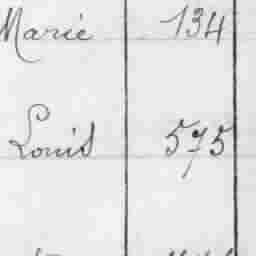 Marie 134
Louis 575